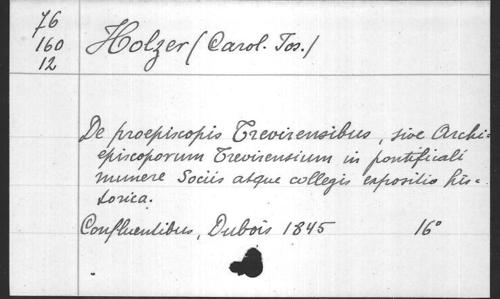 76
160
12
Holzer (Carol. Jos.)
De proepiscopis Trevirensibus, sive Archi=
episcoporum Trevirensium in pontificali
munere Sociis atque collegis expositio his=
torica.
Confluentibus, Dubois 1845 16°